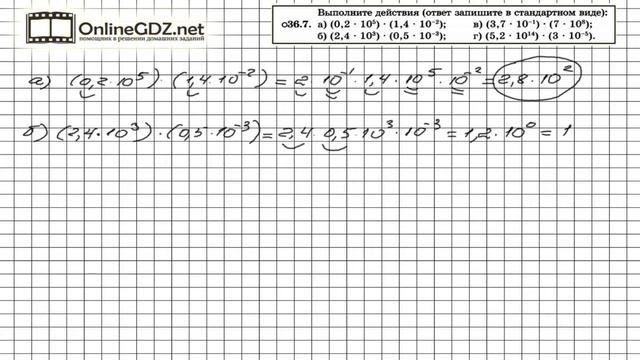 OnlineGDZ.net
помощник в решении домашних заданий
Выполните действия (ответ запишите в стандартном виде):
о36.7. а) (0,2 · 10⁵) · (1,4 · 10⁻²); в) (3,7 · 10⁻¹) · (7 · 10⁸);
б) (2,4 · 10³) · (0,5 · 10⁻³); г) (5,2 · 10¹⁴) · (3 · 10⁻⁵).
а) (0,2·10⁵)·(1,4·10⁻²)=2·10⁻¹·1,4·10⁵·10⁻²=2,8·10²
б) (2,4·10³)·(0,5·10⁻³)=2,4·0,5·10³·10⁻³=1,2·10⁰=1